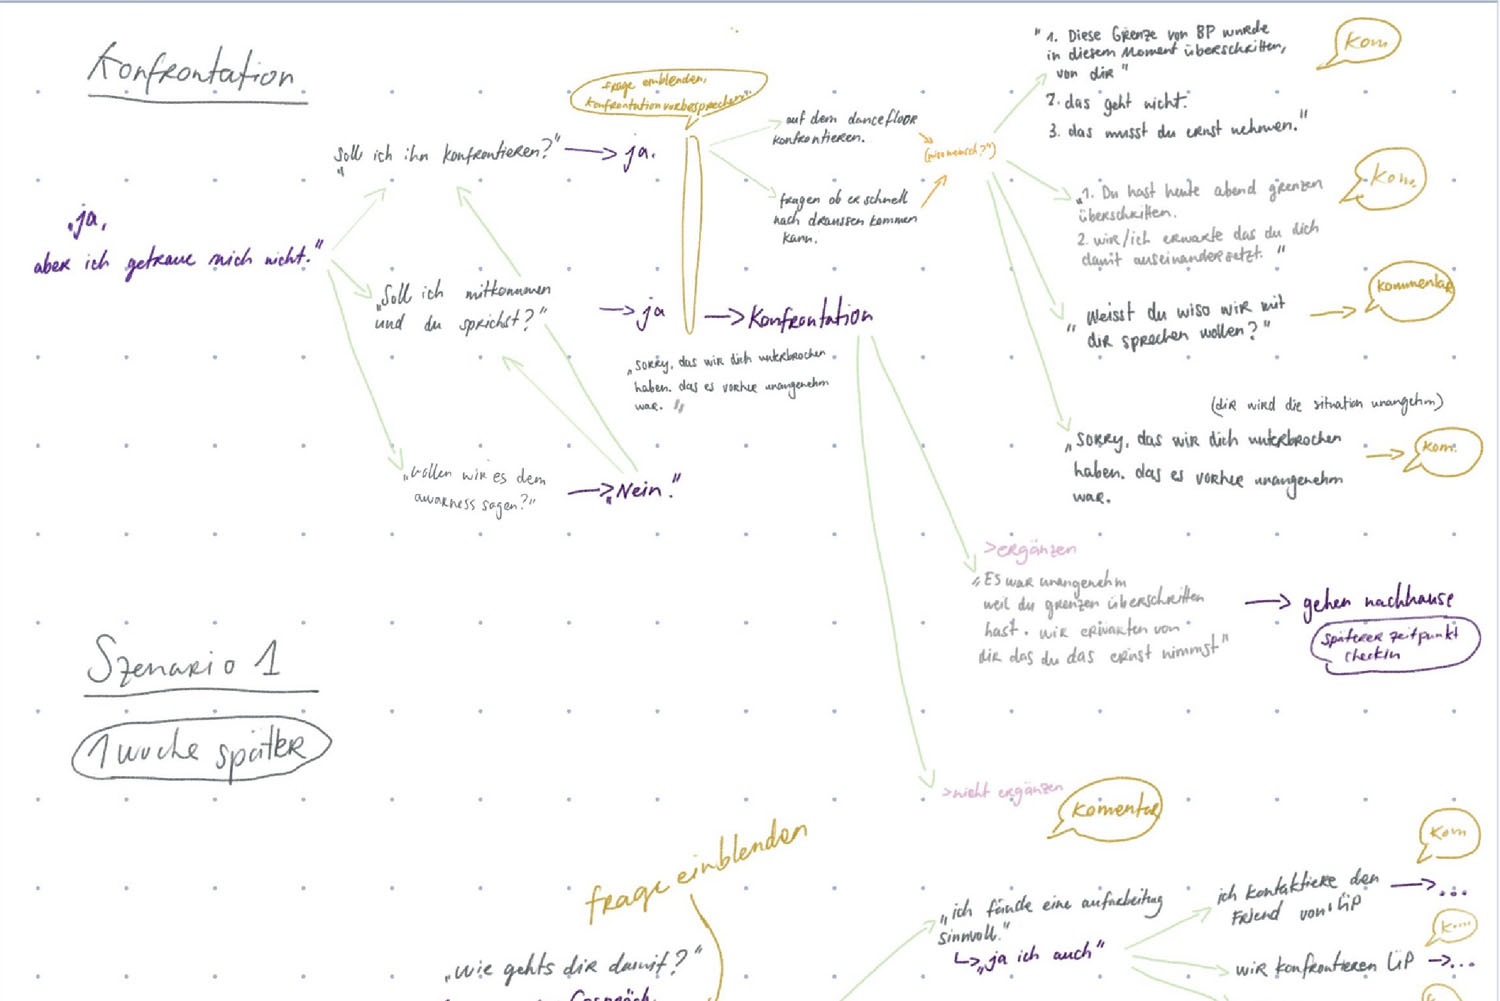 Konfrontation
"ja,
aber ich getraue mich nicht."
"Soll ich ihn konfrontieren?"
ja.
frage einblenden,
konfrontation vorbesprechen"
auf dem dancefloor
konfrontieren.
fragen ob er schnell
nach draussen kommen
kann.
"1. Diese Grenze von BP wurde
in diesem Moment überschritten,
von dir"
2. das geht nicht.
3. das musst du ernst nehmen."
Kom
"1. Du hast heute abend grenzen
überschritten.
2. wir/ich erwarte das du dich
damit auseinandersetzt."
Kom.
"Weisst du wiso wir mit
dir sprechen wollen?"
Kommentar
(dir wird die situation unangehm)
"Sorry, das wir dich unterbrochen
haben. das es vorher unangenehm
war.
Kom.
"Soll ich mitkommen
und du sprichst?"
ja
Konfrontation
"Sorry, das wir dich unterbrochen
haben. das es vorher unangenehm
war."
"wollen wir es dem
awarness sagen?"
"Nein."
>ergänzen
"Es war unangenehm
weil du grenzen überschritten
hast. wir erwarten von
dir das du das ernst nimmst"
gehen nachhause
späterer zeitpunkt
checkin
>nicht ergänzen
Komentar
Szenario 1
1 woche später
frage einblenden
"wie gehts dir damit?"
Gespräch
"ich fände eine aufarbeitug
sinnvoll."
"ja ich auch"
ich kontaktiere den
Friend von ÜP
...
Kom
wir konfrontieren ÜP
...
K....